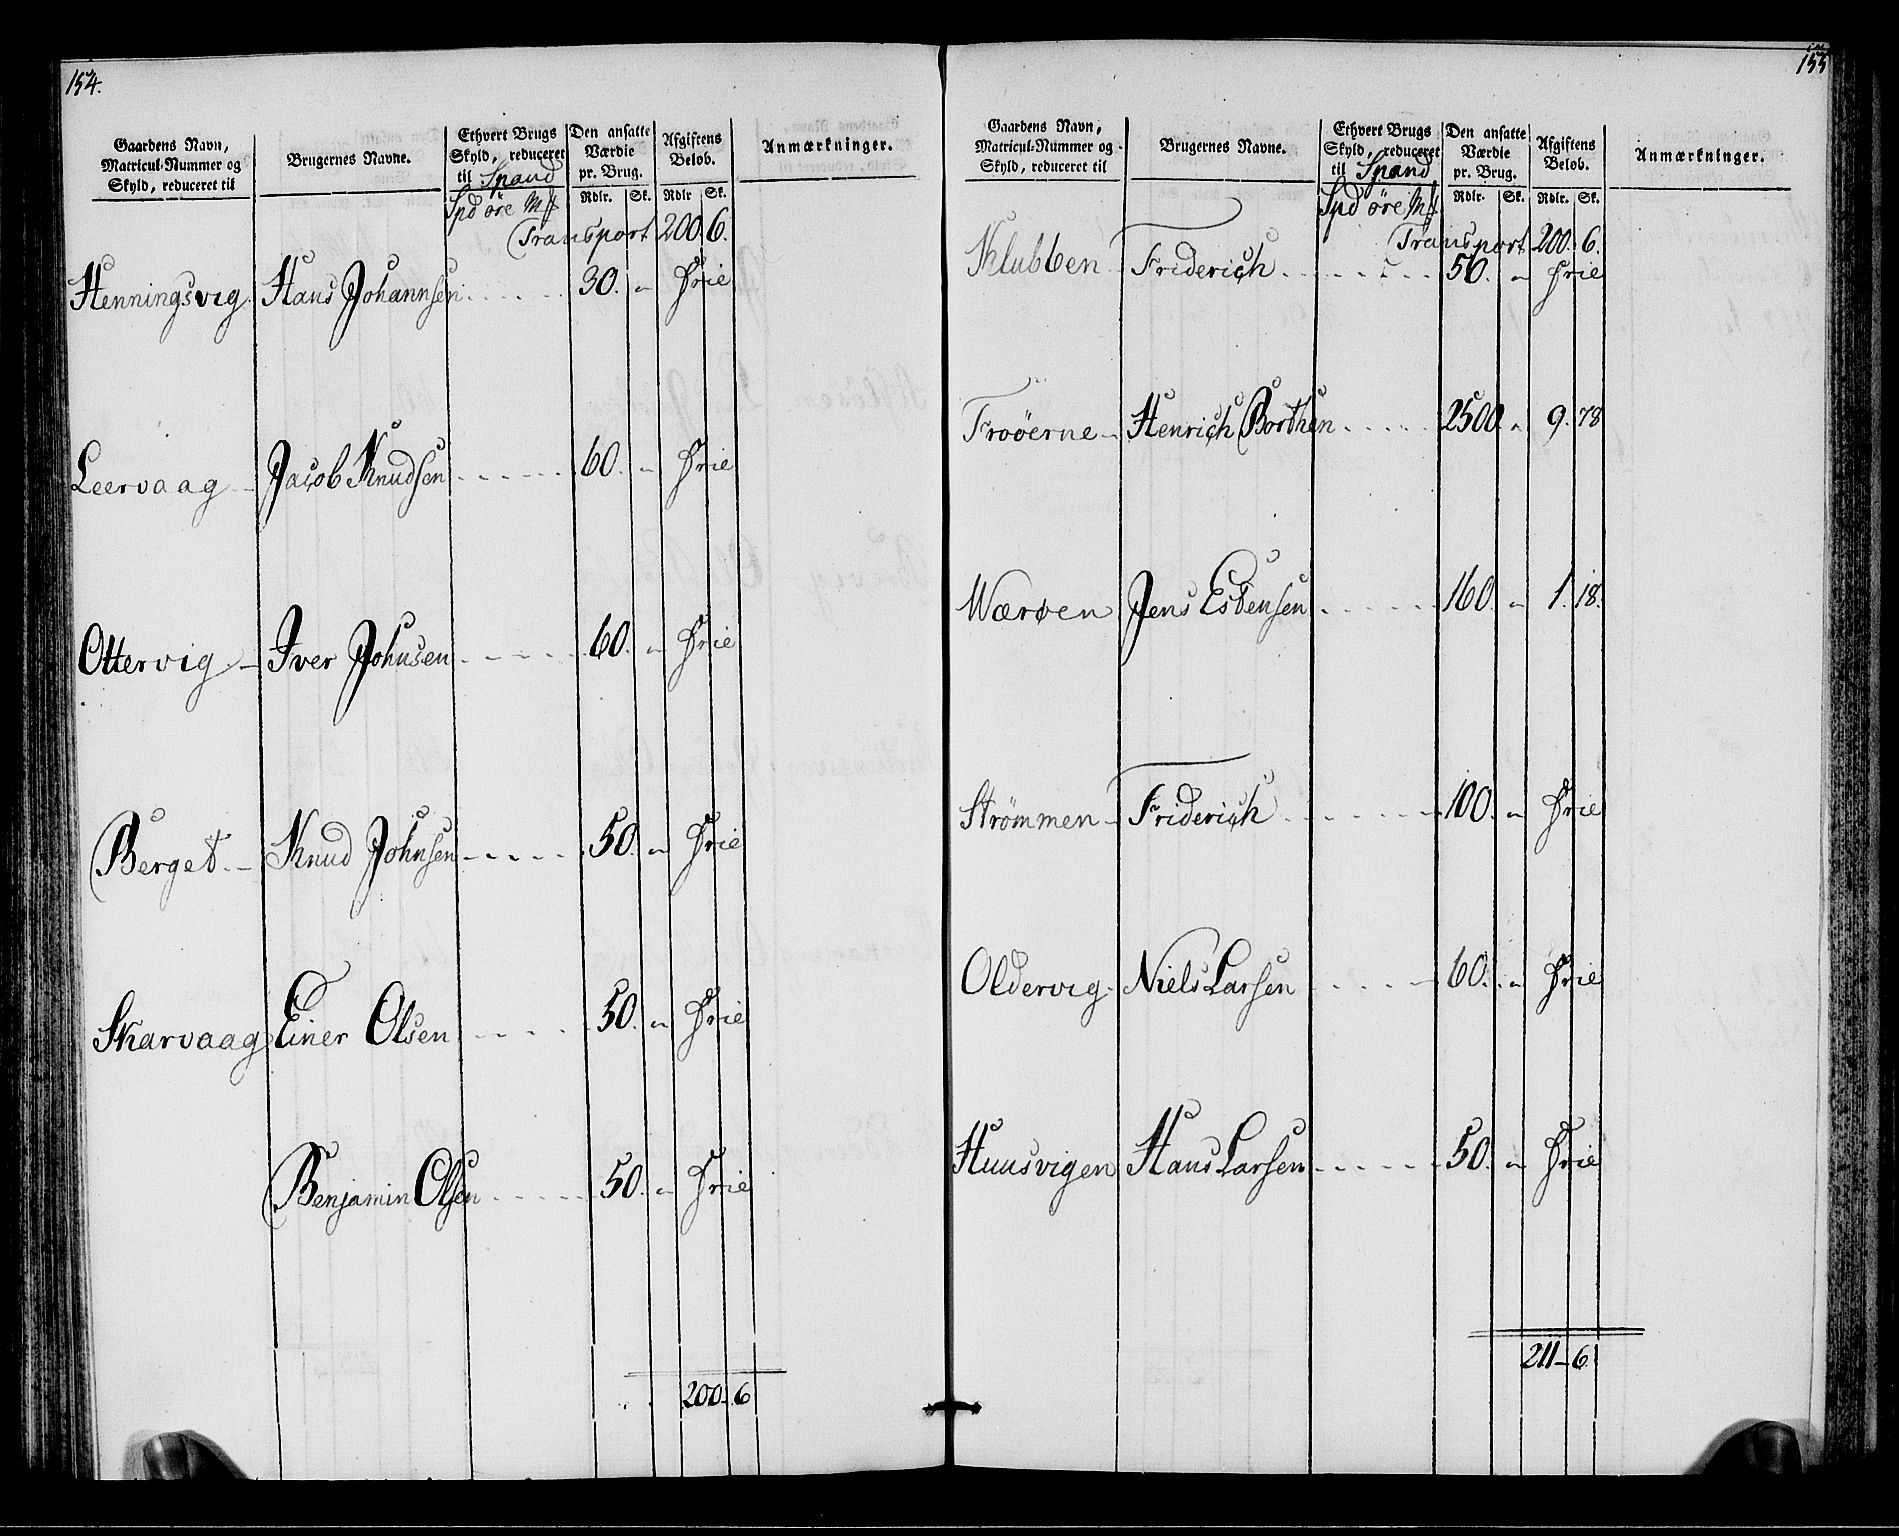 154.
Gaardens Navn, Matricul-Nummer og Skyld, reduceret til | Brugernes Navne. | Ethvert Brugs Skyld, reduceret til Spand | Den ansatte Værdie pr. Brug. | Afgiftens Beløb. | Anmærkninger.
Spd øre Mſ | Rdlr. | Sk. | Rdlr | Sk.
Transport 200. 6.
Henningsvig. Hans Johannsen 30. „ Frie
Leervaag Jacob Knudsen 60. „ Frie
Ottervig Iver Johnsen 60. „ Frie
Berget. Knud Johnsen 50. „ Frie
Skarvaag Einer Olsen 50. „ Frie
Benjamin Olsen 50. „ Frie
200. 6
155
Gaardens Navn, Matricul-Nummer og Skyld, reduceret til | Brugernes Navne. | Ethvert Brugs Skyld, reduceret til Spand | Den ansatte Værdie pr. Brug. | Afgiftens Beløb. | Anmærkninger.
Spd øre Mſ | Rdlr. | Sk. | Rdlr. | Sk.
Transport 200. 6.
Klubben Friderich 50. „ Frie
Froöerne Henrich Borthen 2500 „ 9. 78
Wærøen Jens Esbensen 160 „ 1. 18.
Strömmen Friderich 100. „ Frie
Oldervig Niels Larsen 60. „ Frie
Huusvigen Hans Larsen 50. „ Frie
211 – 6